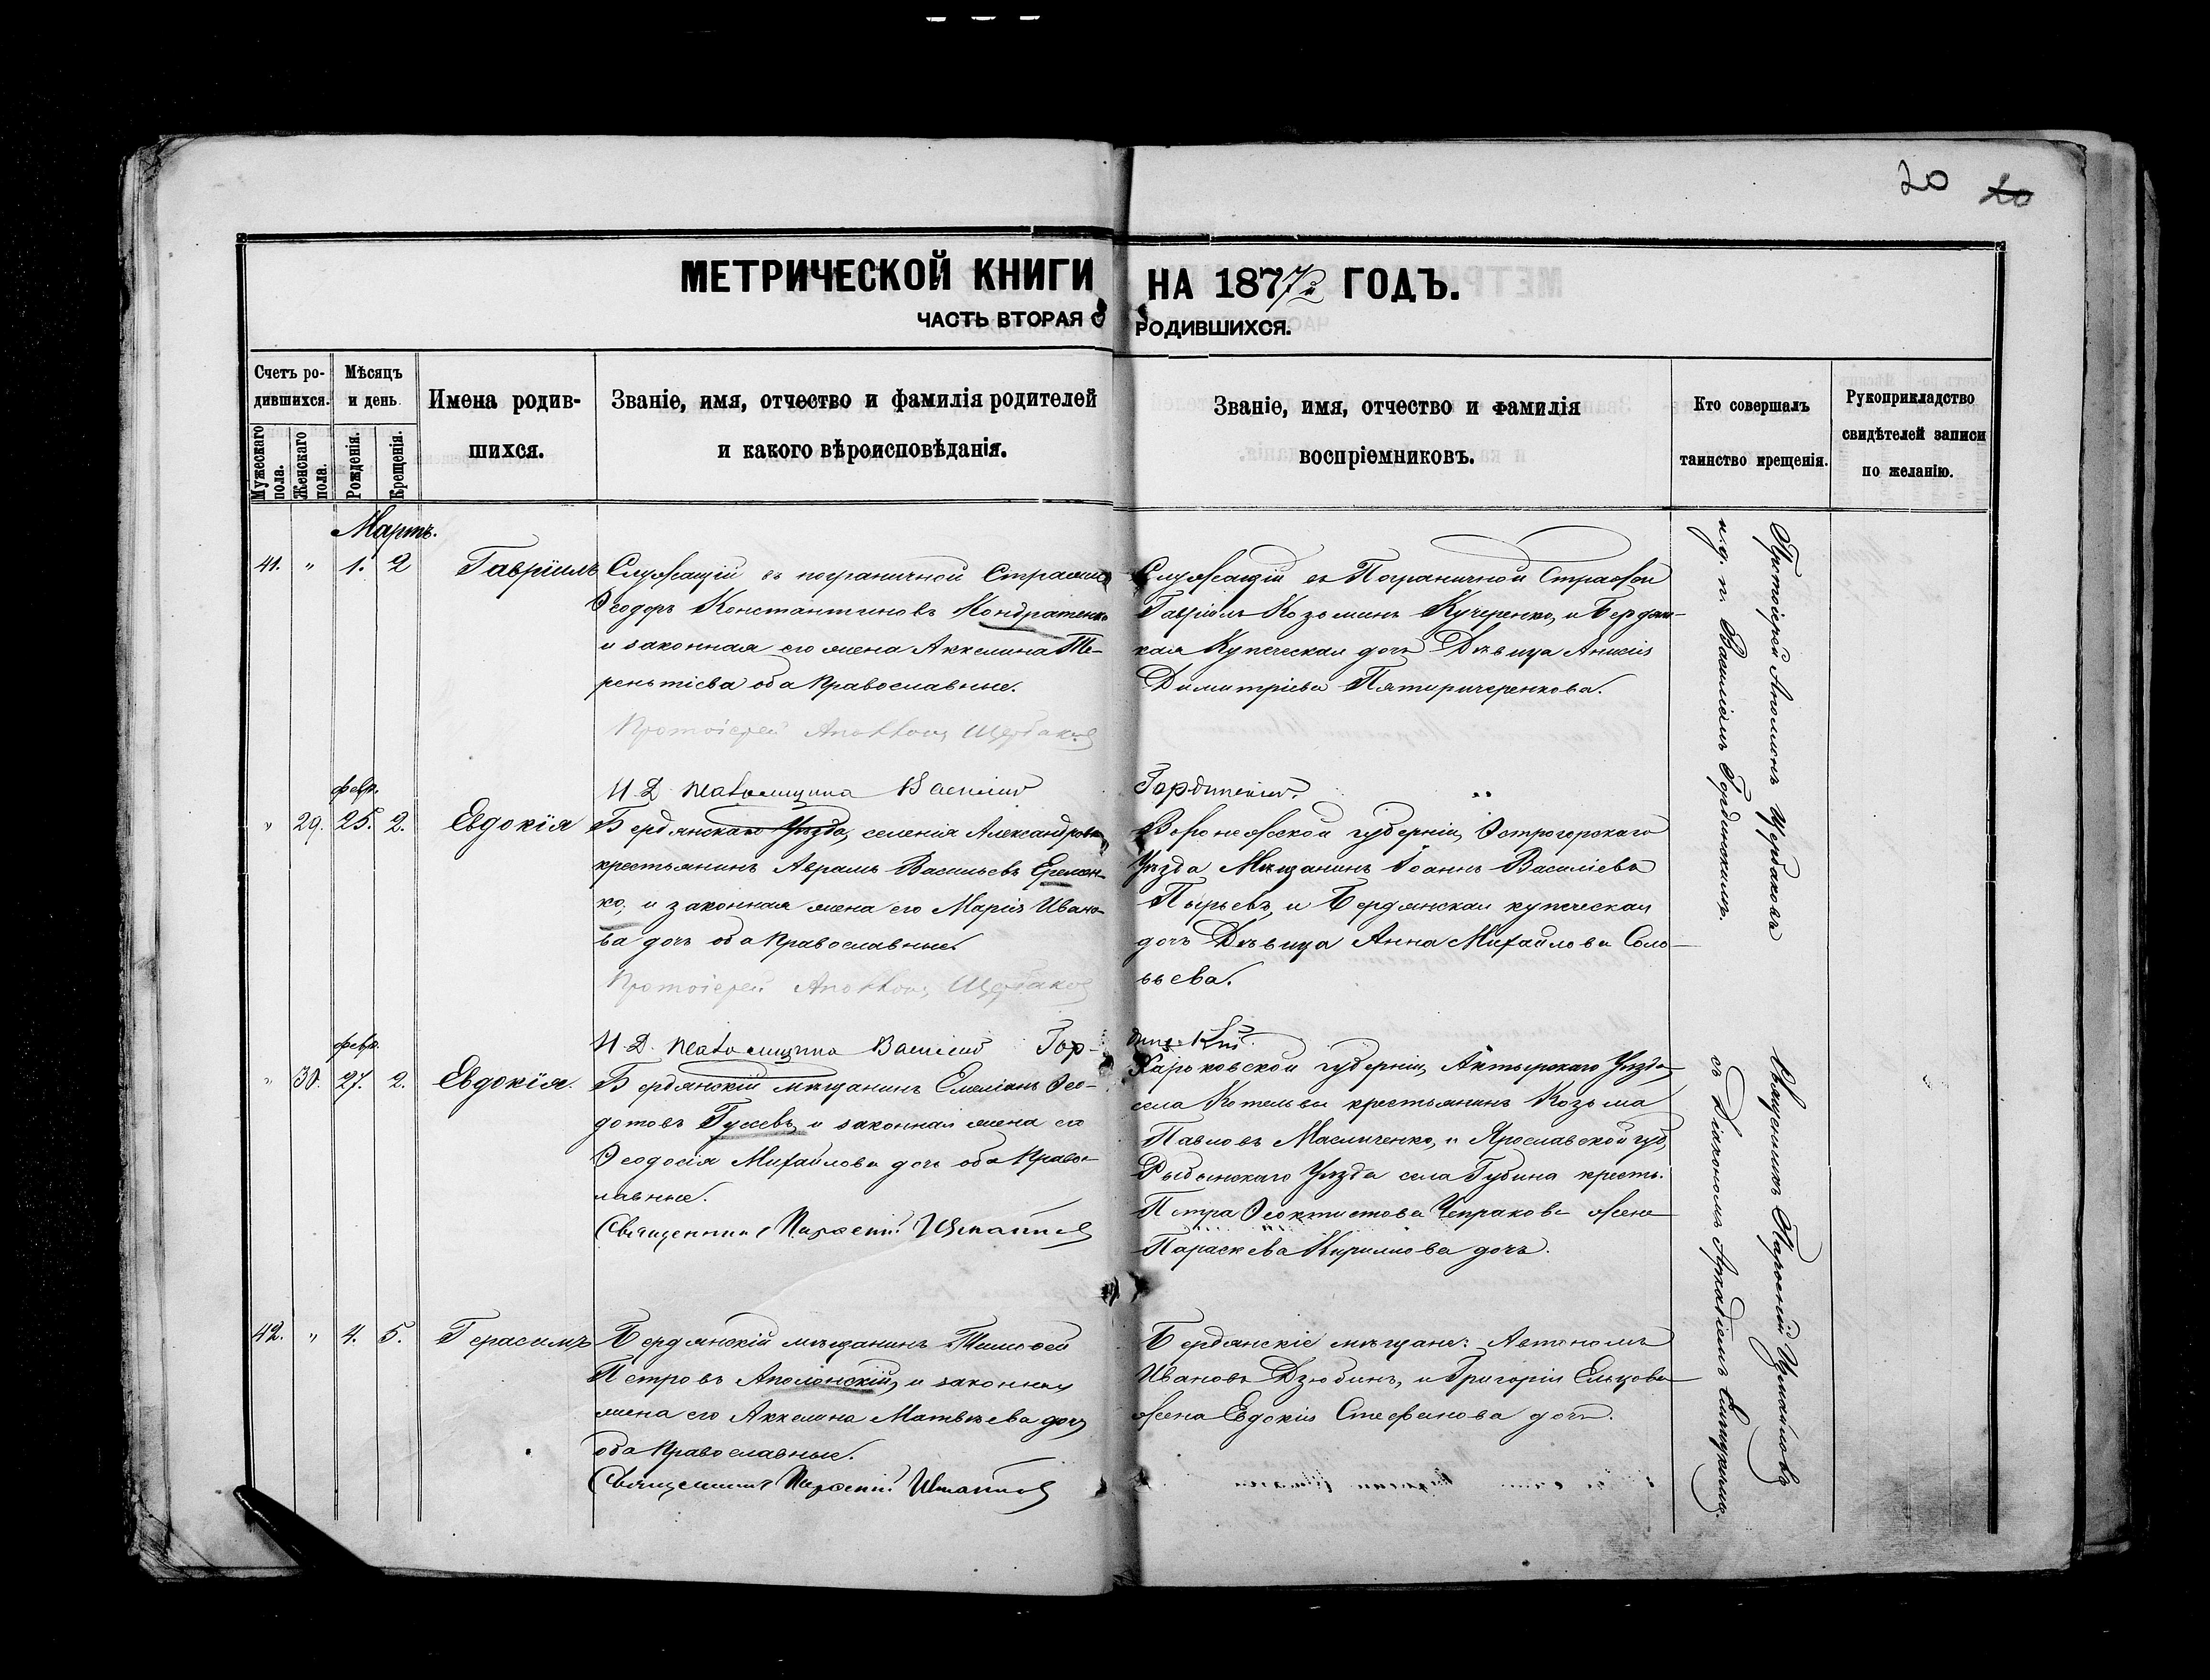 20 20
МЕТРИЧЕСКОЙ КНИГИ НА 1872 ГОДЪ.
ЧАСТЬ ВТОРАЯ О РОДИВШИХСЯ.
Счетъ ро-
дившихся.
Мужескаго пола.
Женскаго пола.
Мѣсяцъ
и день
Рожденія.
Крещенія.
Имена родив-
шихся.
Званіе, имя, отчество и фамилія родителей
и какого вѣроисповѣданія.
Званіе, имя, отчество и фамилія
воспріемниковъ.
Кто совершалъ
таинство крещенія.
Рукоприкладство
свидѣтелей записи
по желанію.
Мартъ.
41. " 1. 2 Гавріилъ
Служащій въ пограничной Стражѣ
Ѳеодоръ Константиновъ Кондратенко
и законная его жена Аккелина Те-
рентіева оба Православные.
Протоіерей Аполлонъ Щербаковъ
И. Д. Василій Гординскій.
Служащій въ Пограничной Стражѣ
Гавріилъ Козьминъ Кучеренко, и Бердян-
кая Купеческая дочь Дѣвица Анисія
Димитріева
Протоіерей Аполлонъ Щербаковъ
и. д. п. Василіемъ Гординскимъ.
февр.
" 29. 25. 2. Евдокія
Бердянскаго Уѣзда, селенія
крестьянинъ Аврамъ Васильевъ Еремен-
ко, и законная жена его Марія Ивано-
ва дочь оба Православные.
Протоіерей Аполлонъ Щербаковъ
И. Д. Василій Гординскій
Воронежской губерніи, Острогорскаго
Уѣзда Мѣщанинъ Іоаннъ Василіевъ
Пырьевъ, и Бердянская купеческая
дочь Дѣвица Анна Михайлова Соло-
вьева.
февр.
" 30. 27. 2. Евдокія.
Бердянскій мѣщанинъ Емеліанъ Ѳео-
дотовъ Гусевъ, и законная жена его
Ѳеодосія Михайлова дочь оба Правос-
лавные.
Священникъ Парѳеній Измаиловъ
Харьковской губерніи, Ахтырскаго Уѣзда
села Котельвы крестьянинъ Козьма
Павловъ Масличенко, и Ярославской губ,
Рыбинскаго Уѣзда села Губина кресть.
Петра Ѳеоктистова Чепракова жена
Параскева Кирилова дочь.
Священникъ Парѳеній Измаиловъ
съ Діакономъ Аркадіемъ
42. " 4. 5. Герасимъ
Бердянскій мѣщанинъ Тимоѳей
Петровъ Аполонскій, и законная
жена его Аккелина Матвѣева дочь
оба Православные.
Священникъ Парѳеній Измаиловъ
Бердянскіе мѣщане: Автономъ
Ивановъ Дзюбинъ, и Григорія Ельцова
жена Евдокія Стефанова дочь.